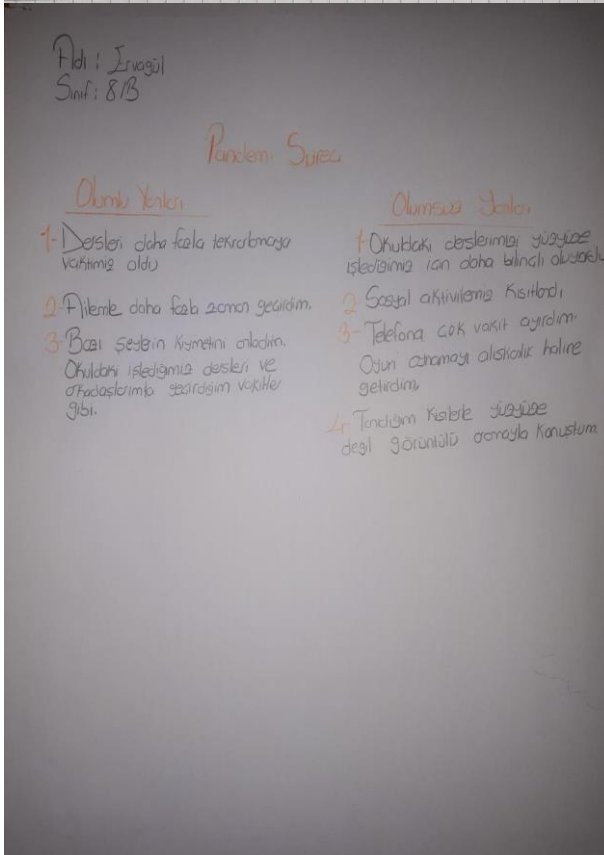 Adı : İrvagül
Sınıf : 8/B
Pandemi Süreci
Olumlu Yönleri
1- Dersleri daha fazla tekrarlamaya
vaktimiz oldu
2- Ailemle daha fazla zaman geçirdim.
3- Bazı şeylerin kıymetini anladım.
Okuldaki işlediğimiz dersleri ve
arkadaşlarımla geçirdiğim vakitler
gibi.
Olumsuz Yönleri
1- Okuldaki derslerimizi yüzyüze
işlediğimiz için daha bilinçli oluyorduk
2 Sosyal aktivitemiz kısıtlandı
3- Telefona çok vakit ayırdım.
Oyun oynamayı alışkanlık haline
getirdim.
4- Tanıdığım kişilerle yüzyüze
değil görüntülü aramayla konuştum.